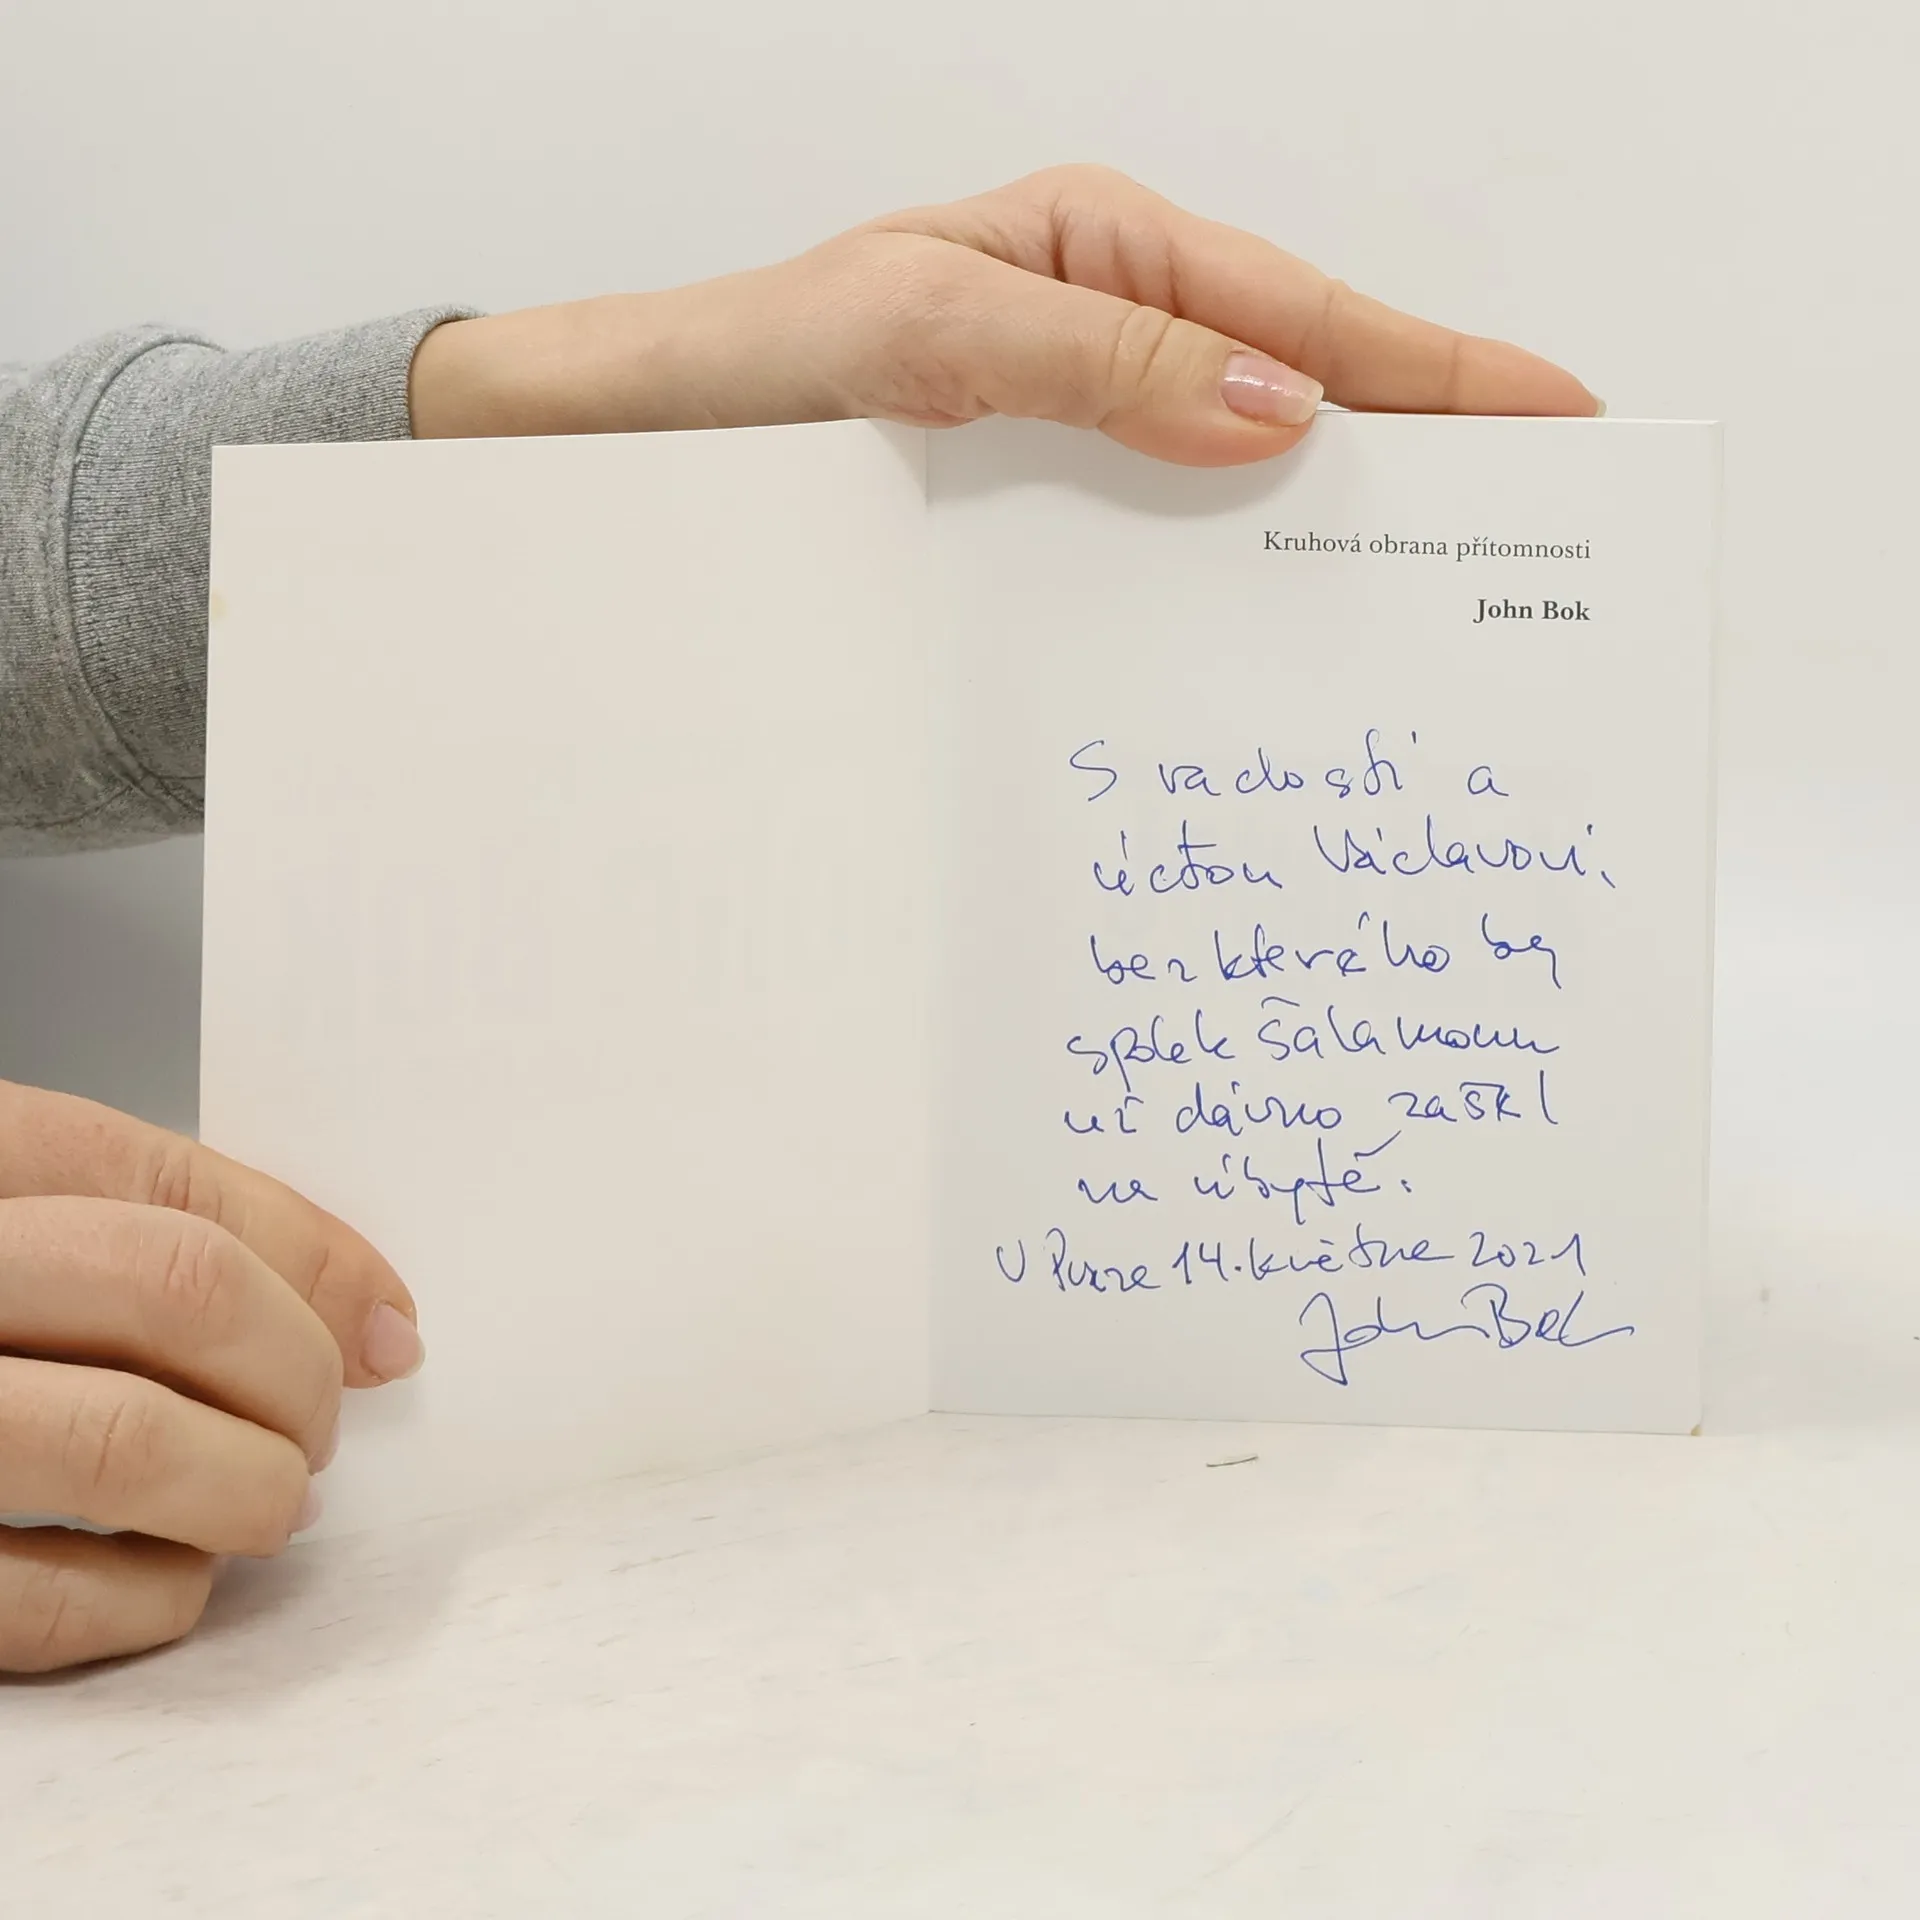 Kruhová obrana přítomnosti
John Bok
S radostí a
úctou Václavovi,
bez kterého by
spolek Šalamoun
už dávno zašel
na úbytě.
V Praze 14. května 2021
John Bok